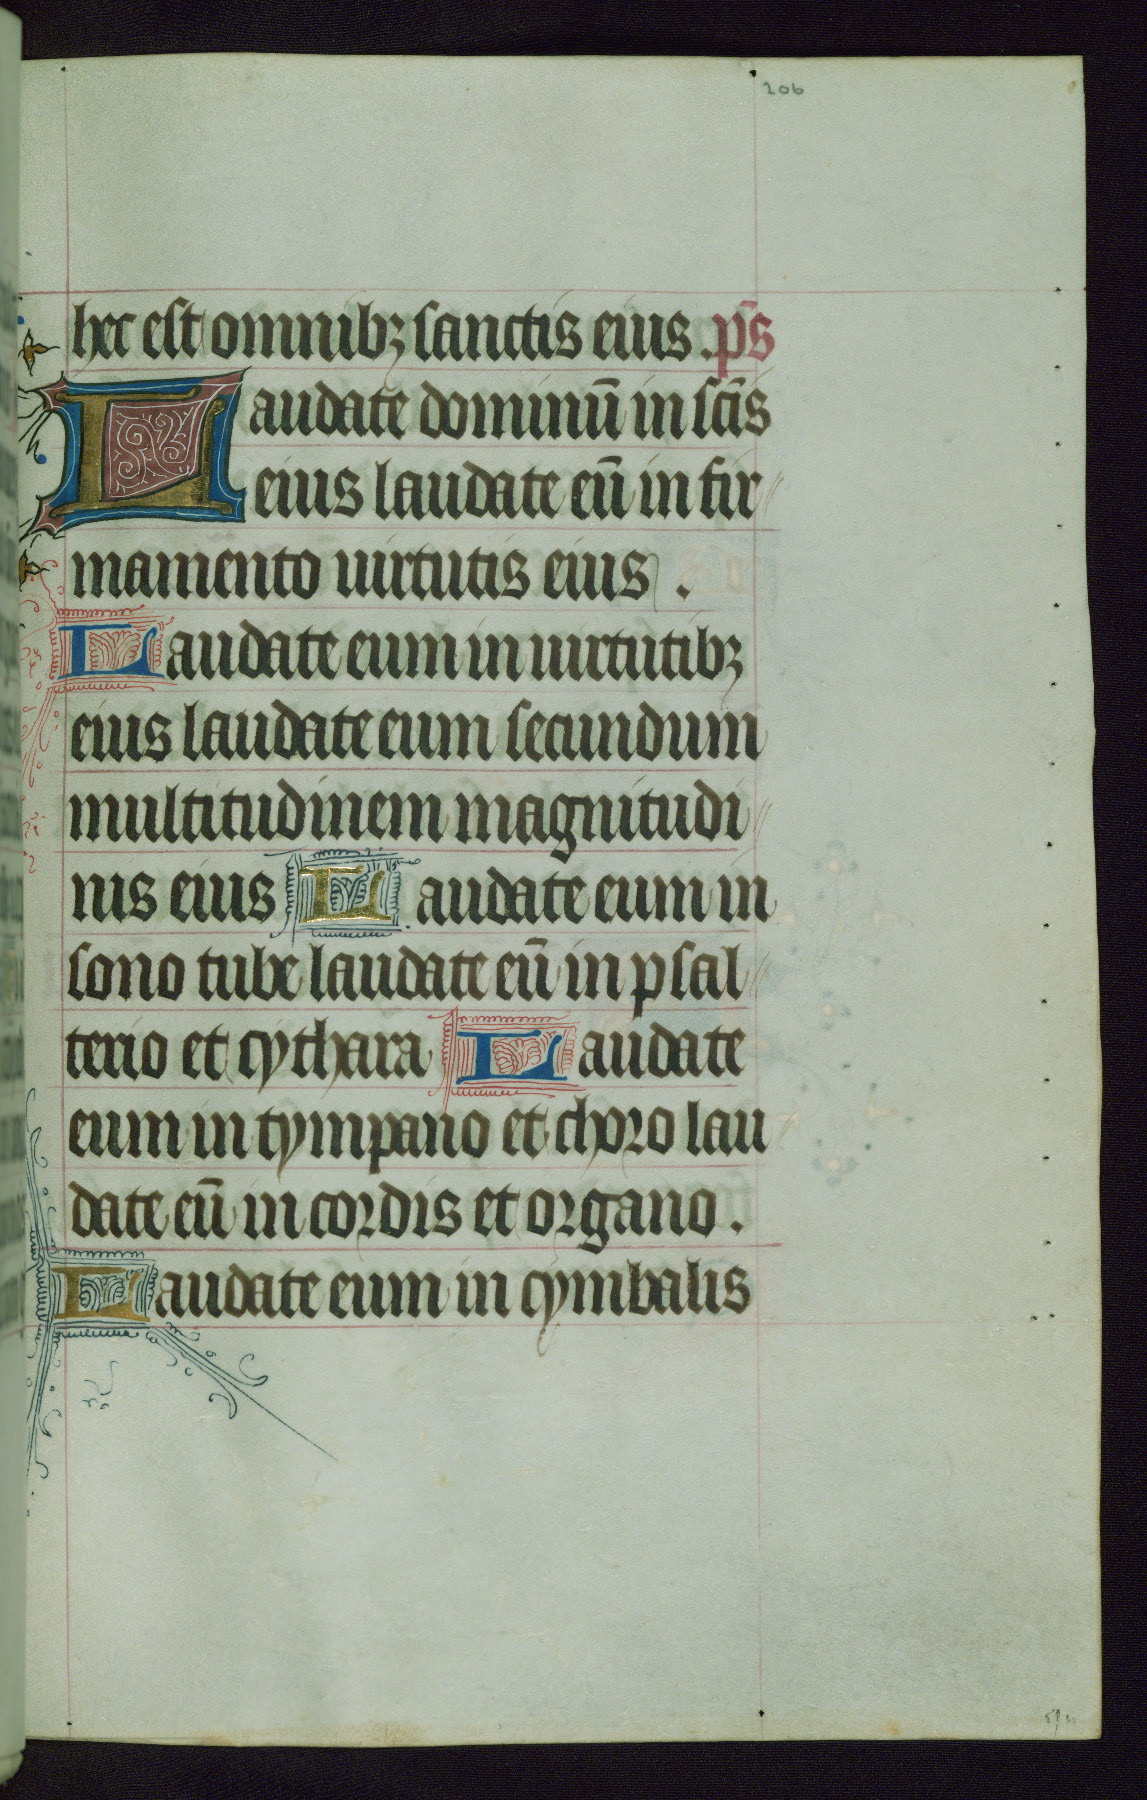 206
hec est omnibꝫ sanctis eius . p̄s
Laudate dominū in sc̄is
eius laudate eū in fir
mamento uirtutis eius .
Laudate eum in uirtutibꝫ
eius laudate eum secundum
multitudinem magnitudi
nis eius Laudate eum in
sono tube laudate eū in psal
terio et cythara Laudate
eum in tympano et choro lau
date eū in cordis et organo .
Laudate eum in cymbalis